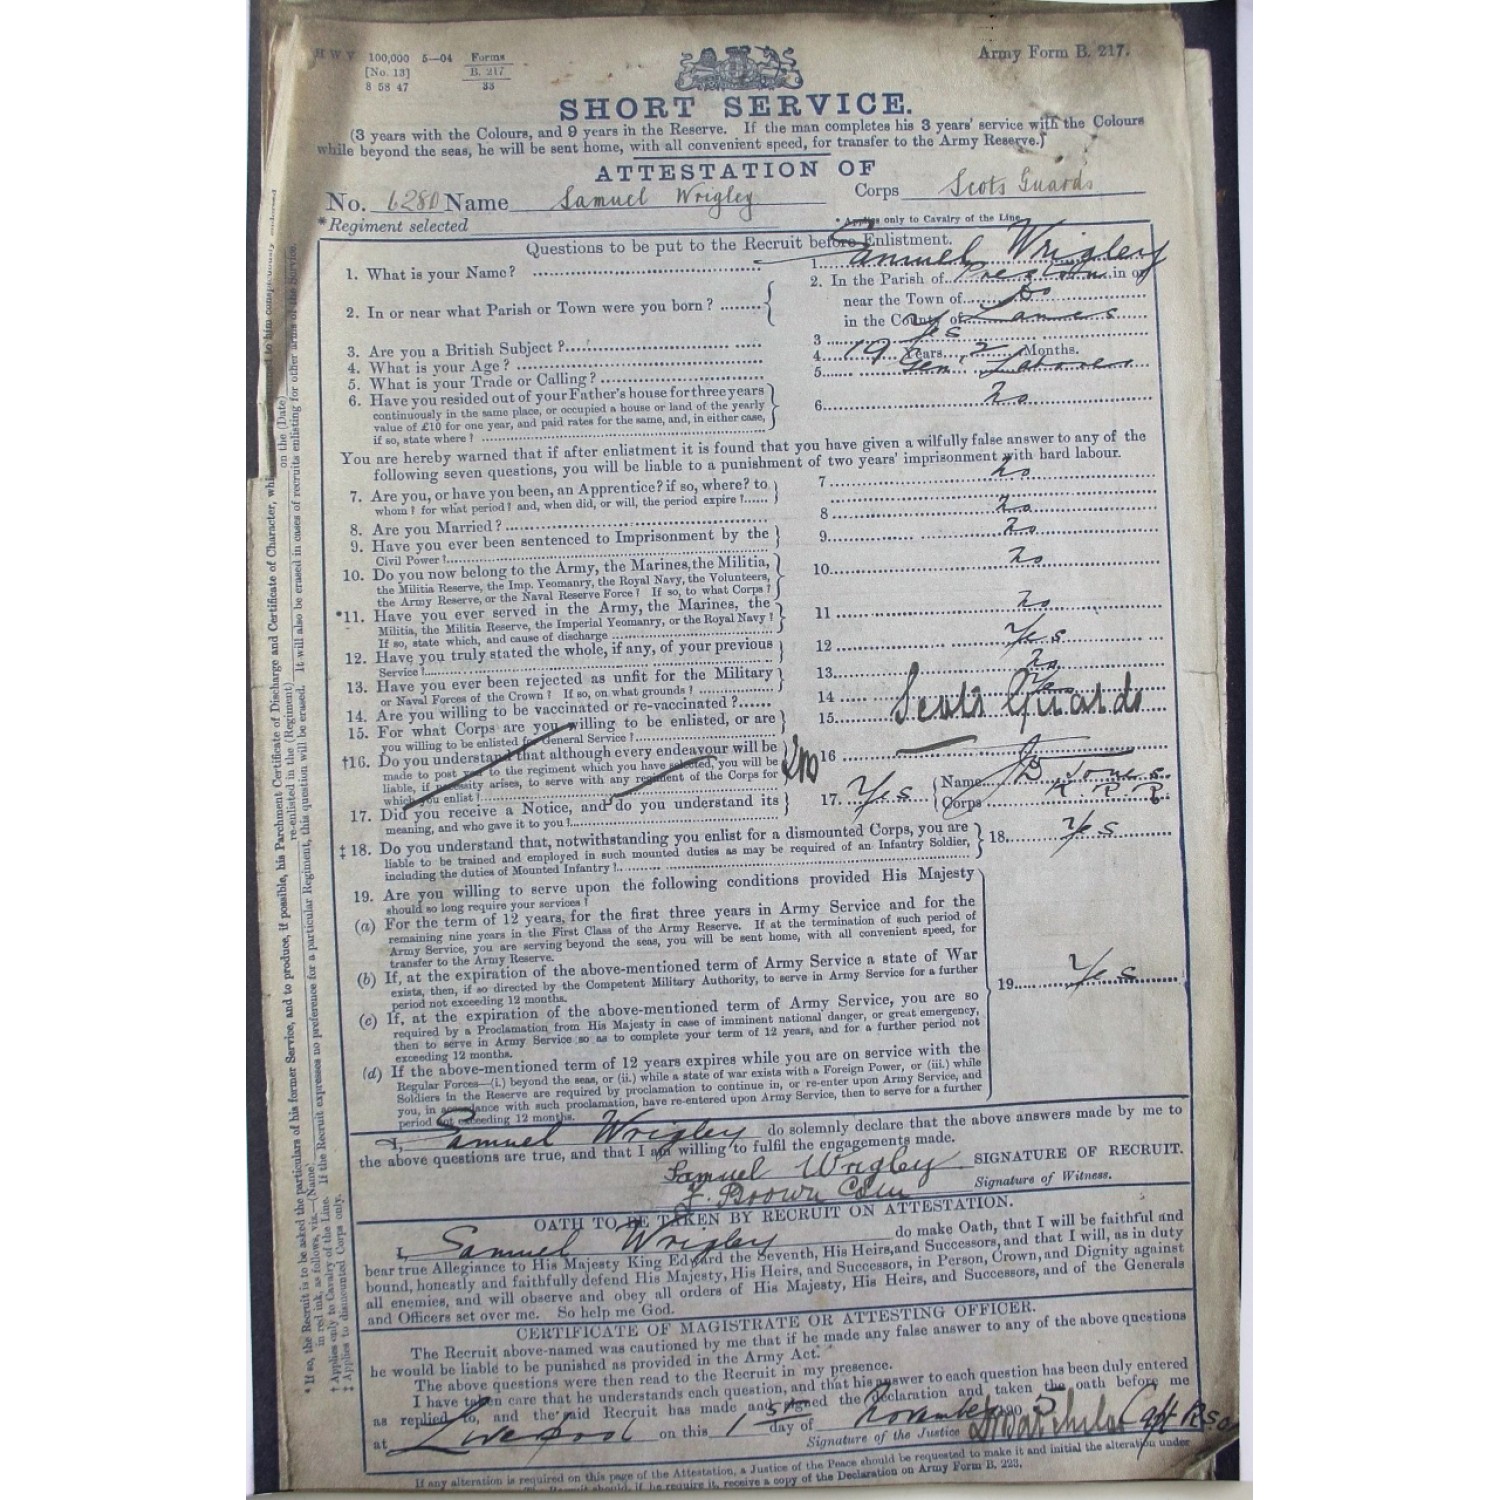 H W V 100,000 5—04 Forms
[No. 13] B. 217
8 58 47 33
Army Form B. 217.
SHORT SERVICE.
(3 years with the Colours, and 9 years in the Reserve. If the man completes his 3 years' service with the Colours
while beyond the seas, he will be sent home, with all convenient speed, for transfer to the Army Reserve.)
ATTESTATION OF
No. 6280 Name Samuel Wrigley Corps Scots Guards
*Regiment selected
* Applies only to Cavalry of the Line.
Questions to be put to the Recruit before Enlistment.
1. What is your Name? 1. Samuel Wrigley
2. In or near what Parish or Town were you born? 2. In the Parish of Preston in or
near the Town of Do
in the County of Lancs
3. Are you a British Subject? 3 Yes
4. What is your Age? 4. 19 Years 2 Months.
5. What is your Trade or Calling? 5. Gen. Labourer
6. Have you resided out of your Father's house for three years
continuously in the same place, or occupied a house or land of the yearly
value of £10 for one year, and paid rates for the same, and, in either case,
if so, state where? 6. No
You are hereby warned that if after enlistment it is found that you have given a wilfully false answer to any of the
following seven questions, you will be liable to a punishment of two years' imprisonment with hard labour.
7. Are you, or have you been, an Apprentice? if so, where? to
whom? for what period? and, when did, or will, the period expire? 7 No
8. Are you Married? 8 No
9. Have you ever been sentenced to Imprisonment by the
Civil Power? 9. No
10. Do you now belong to the Army, the Marines, the Militia,
the Militia Reserve, the Imp. Yeomanry, the Royal Navy, the Volunteers,
the Army Reserve, or the Naval Reserve Force? If so, to what Corps? 10. No
*11. Have you ever served in the Army, the Marines, the
Militia, the Militia Reserve, the Imperial Yeomanry, or the Royal Navy?
If so, state which, and cause of discharge 11 No
12. Have you truly stated the whole, if any, of your previous
Service? 12 Yes
13. Have you ever been rejected as unfit for the Military
or Naval Forces of the Crown? If so, on what grounds? 13. No
14. Are you willing to be vaccinated or re-vaccinated? 14 Yes
15. For what Corps are you willing to be enlisted, or are
you willing to be enlisted for General Service? 15. Scots Guards
†16. Do you understand that although every endeavour will be
made to post you to the regiment which you have selected, you will be
liable, if necessity arises, to serve with any regiment of the Corps for
which you enlist? 16
17. Did you receive a Notice, and do you understand its
meaning, and who gave it to you? 17. Yes Name Jones
Corps
‡18. Do you understand that, notwithstanding you enlist for a dismounted Corps, you are
liable to be trained and employed in such mounted duties as may be required of an Infantry Soldier,
including the duties of Mounted Infantry? 18. Yes
19. Are you willing to serve upon the following conditions provided His Majesty
should so long require your services?
(a) For the term of 12 years, for the first three years in Army Service and for the
remaining nine years in the First Class of the Army Reserve. If at the termination of such period of
Army Service, you are serving beyond the seas, you will be sent home, with all convenient speed, for
transfer to the Army Reserve.
(b) If, at the expiration of the above-mentioned term of Army Service a state of War
exists, then, if so directed by the Competent Military Authority, to serve in Army Service for a further
period not exceeding 12 months. 19. Yes
(c) If, at the expiration of the above-mentioned term of Army Service, you are so
required by a Proclamation from His Majesty in case of imminent national danger, or great emergency,
then to serve in Army Service so as to complete your term of 12 years, and for a further period not
exceeding 12 months.
(d) If the above-mentioned term of 12 years expires while you are on service with the
Regular Forces—(i.) beyond the seas, or (ii.) while a state of war exists with a Foreign Power, or (iii.) while
Soldiers in the Reserve are required by proclamation to continue in, or re-enter upon Army Service, and
you, in accordance with such proclamation, have re-entered upon Army Service, then to serve for a further
period not exceeding 12 months.
I, Samuel Wrigley do solemnly declare that the above answers made by me to
the above questions are true, and that I am willing to fulfil the engagements made.
Samuel Wrigley SIGNATURE OF RECRUIT.
F. Brown Signature of Witness.
OATH TO BE TAKEN BY RECRUIT ON ATTESTATION.
I, Samuel Wrigley do make Oath, that I will be faithful and
bear true Allegiance to His Majesty King Edward the Seventh, His Heirs, and Successors, and that I will, as in duty
bound, honestly and faithfully defend His Majesty, His Heirs, and Successors, in Person, Crown, and Dignity against
all enemies, and will observe and obey all orders of His Majesty, His Heirs, and Successors, and of the Generals
and Officers set over me. So help me God.
CERTIFICATE OF MAGISTRATE OR ATTESTING OFFICER.
The Recruit above-named was cautioned by me that if he made any false answer to any of the above questions
he would be liable to be punished as provided in the Army Act.
The above questions were then read to the Recruit in my presence.
I have taken care that he understands each question, and that his answer to each question has been duly entered
as replied to, and the said Recruit has made and signed the declaration and taken the oath before me
at Liverpool on this 1st day of November 190 5
Signature of the Justice Capt
If any alteration is required on this page of the Attestation, a Justice of the Peace should be requested to make it and initial the alteration under
The Recruit should, if he require it, receive a copy of the Declaration on Army Form B. 223.
* If so, the Recruit is to be asked the particulars of his former Service, and to produce, if possible, his Parchment Certificate of Discharge and Certificate of Character,
in red ink, as follows, viz.—(Name) re-enlisted in the (Regiment) on the (Date)
† Applies only to Cavalry of the Line. If the Recruit expresses no preference for a particular Regiment, this question will be erased. It will also be erased in cases of recruits enlisting for other arms of the Service.
‡ Applies to dismounted Corps only.